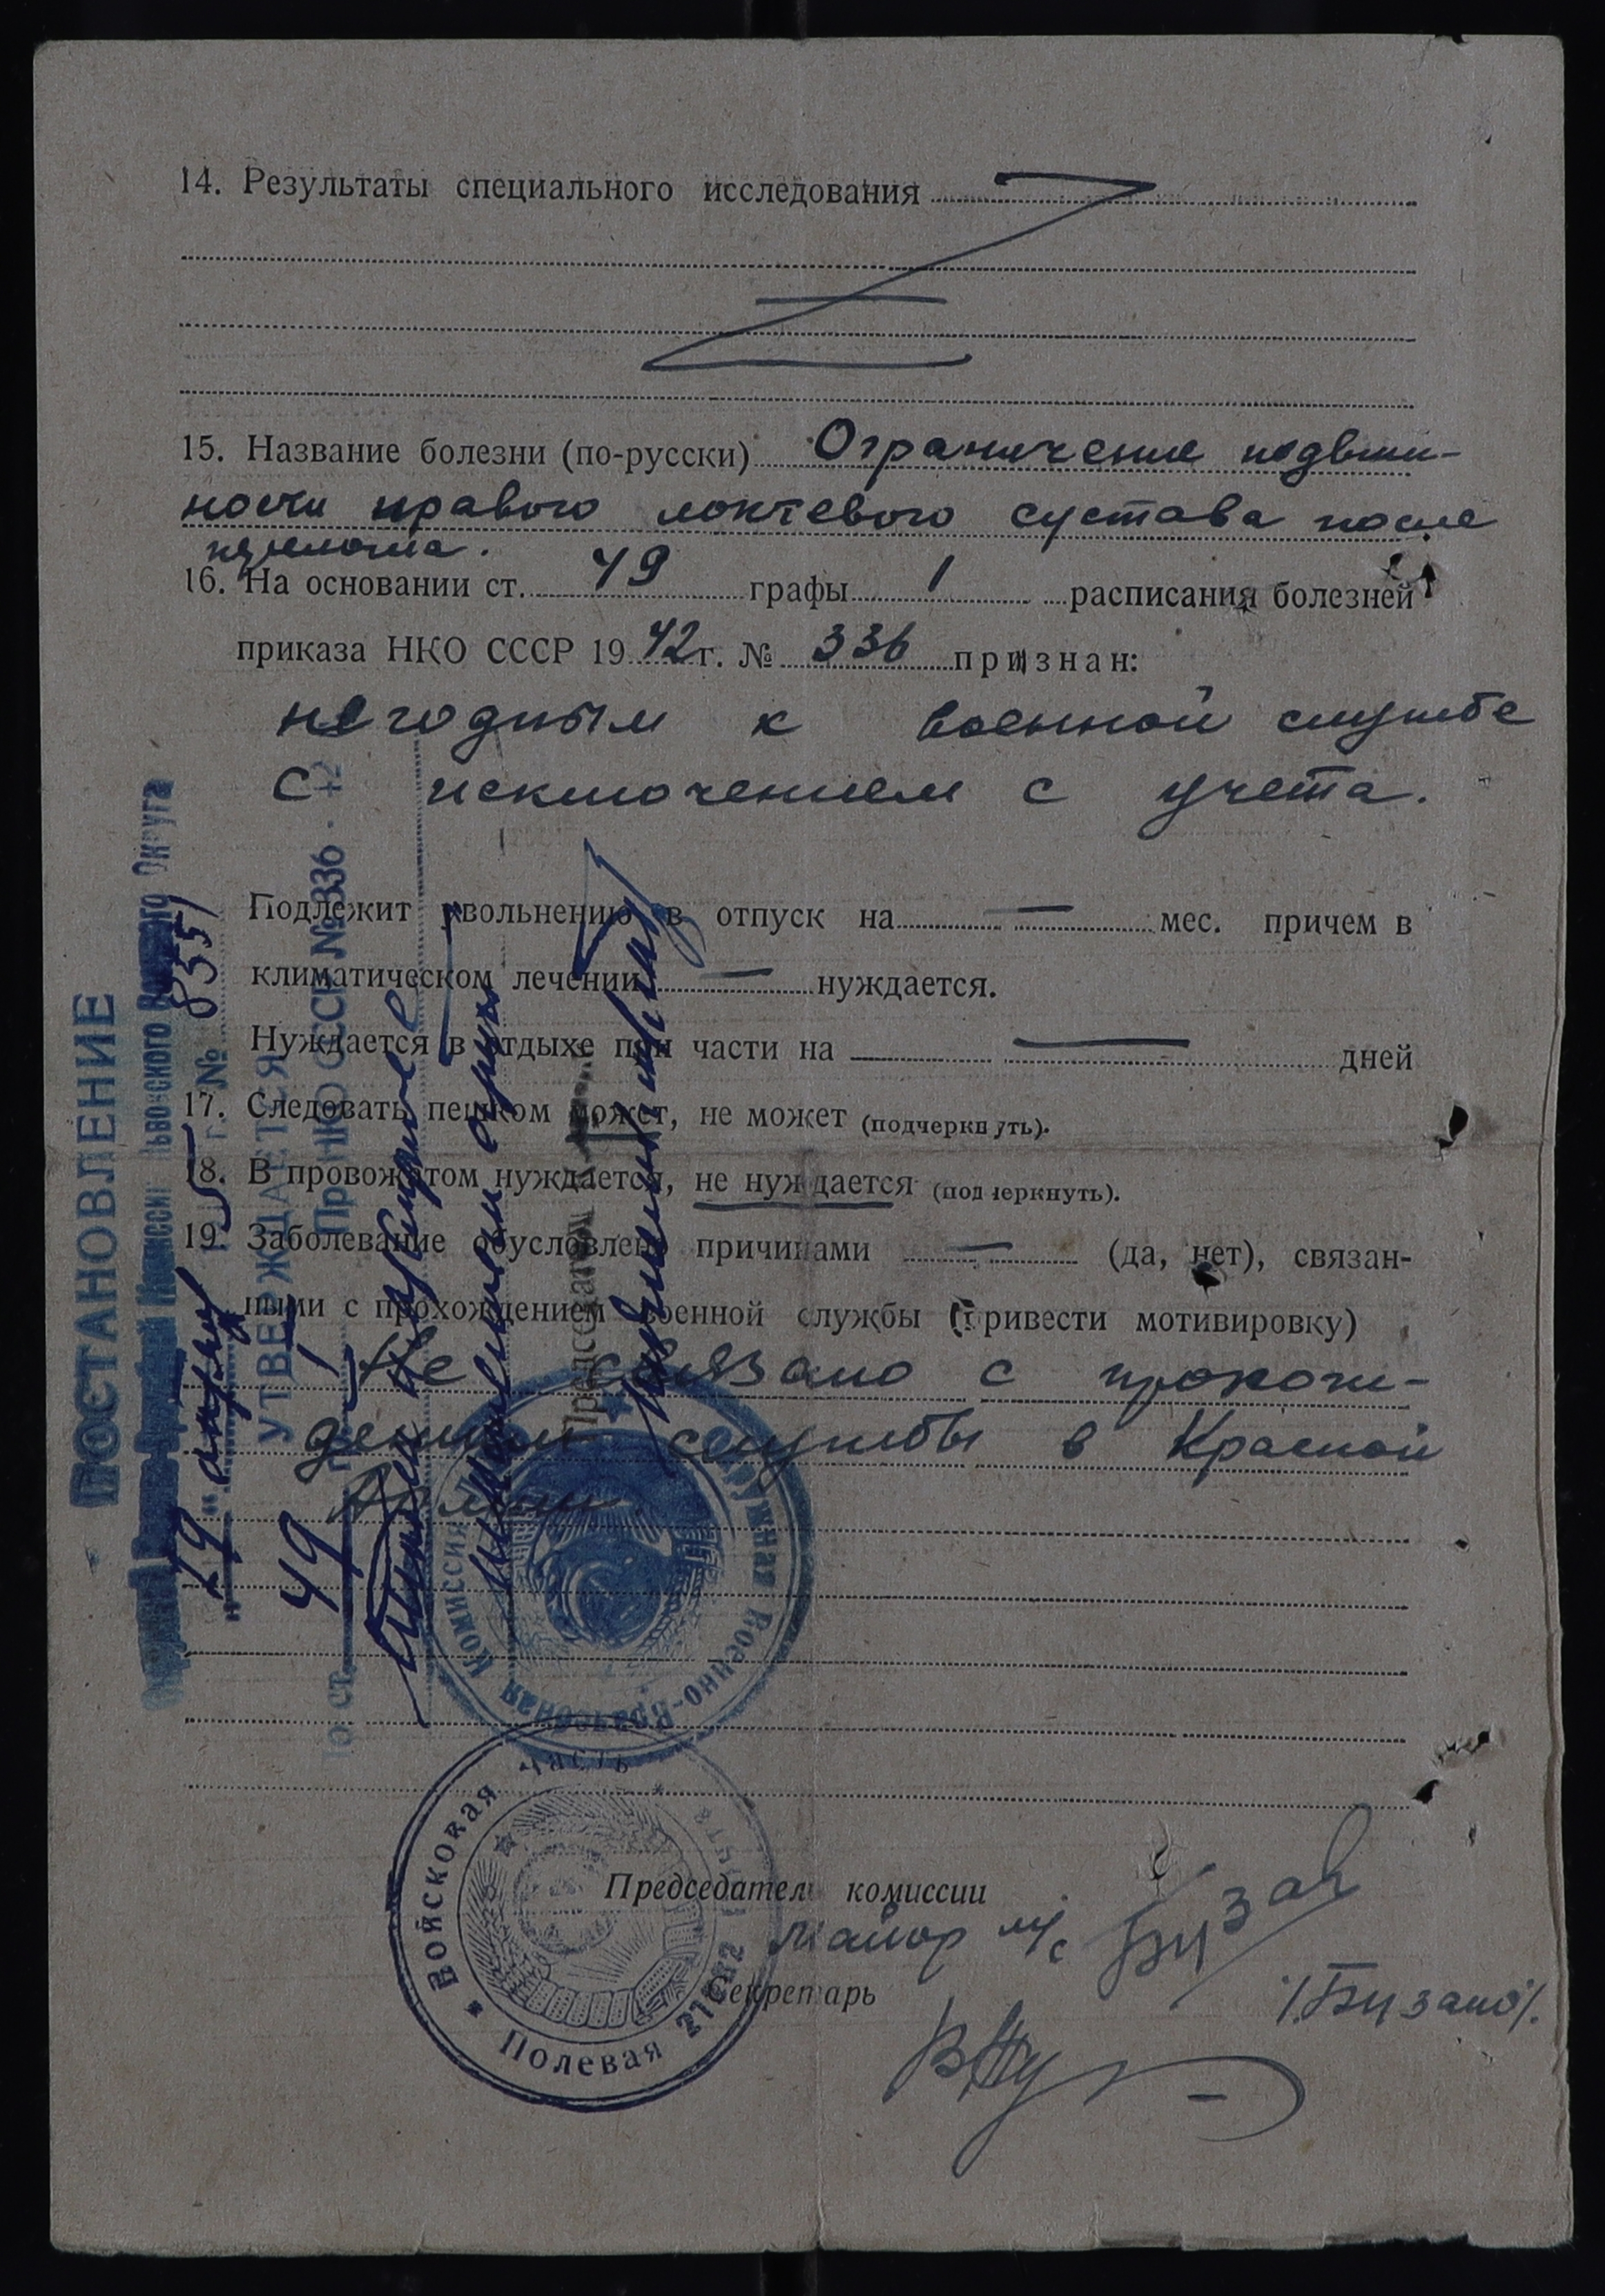 14. Результаты специального исследования
15. Название болезни (по-русски) Ограничение подвиж-
ности правого локтевого сустава после
перелома.
16. На основании ст. 49 графы 1 расписания болезней
приказа НКО СССР 1942 г. № 336 признан:
негодным к военной службе
с исключением с учета.
Подлежит увольнению в отпуск на — мес. причем в
климатическом лечении — нуждается.
Нуждается в отдыхе при части на — дней
17. Следовать пешком может, не может (подчеркнуть).
18. В провожатом нуждается, не нуждается (подчеркнуть).
19. Заболевание обусловлено причинами — (да, нет), связан-
ными с прохождением военной службы (привести мотивировку)
Не связано с прохож-
дением службы в Красной
Армии.
Председатель комиссии
Майор м/с Бузан
/Бузано/.
Секретарь
ПОСТАНОВЛЕНИЕ
Окружной Военно-Врачебной Комиссии Львовского Военного Округа
"19" 1945 г. № 8351
УТВЕРЖДАЕТСЯ
по ст. 49 Пр. НКО СССР № 336 - 42
Председатель
Окружная Военно-Врачебная Комиссия
Войсковая часть
Полевая